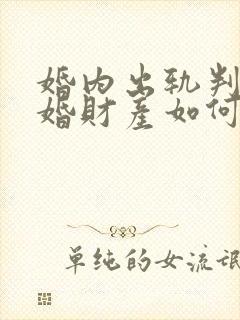 婚内出轨判
婚財産如何
单纯的女流氓